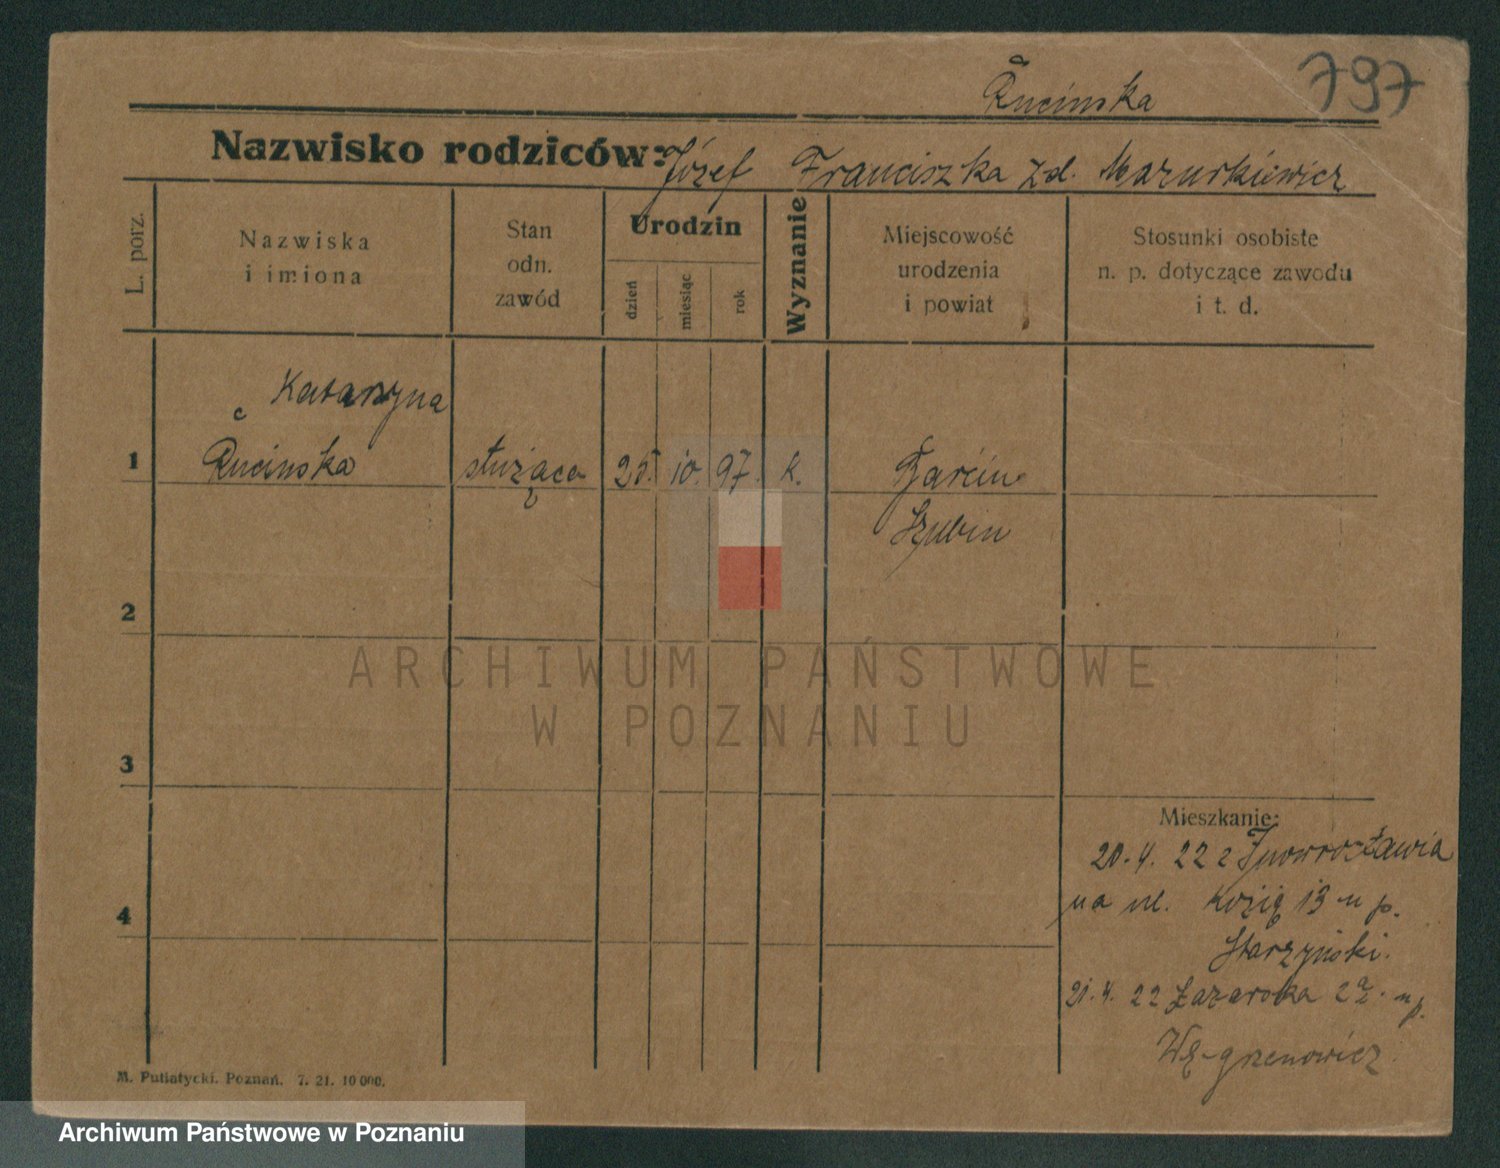 Rucinska 797
Nazwisko rodziców: Józef Franciszka zd. Mazurkiewicz
L. porz.
Nazwiska
i imiona
Stan
odn.
zawód
Urodzin
dzień
miesiąc
rok
Wyznanie
Miejscowość
urodzenia
i powiat
Stosunki osobiste
n. p. dotyczące zawodu
i t. d.
Katarzyna
1 Rucinska służąca 25. 10. 97. k. Barcin
Szubin
2
3
4
Mieszkanie:
20.4. 22 z Inowrocławia
na ul. Kozią 13 u p.
Starzyński.
21.4. 22 Łazarska 2a u p.
Węgrzenowicz
M. Putiatycki. Poznań. 7. 21. 10 000.
ARCHIWUM PAŃSTWOWE
W POZNANIU
Archiwum Państwowe w Poznaniu